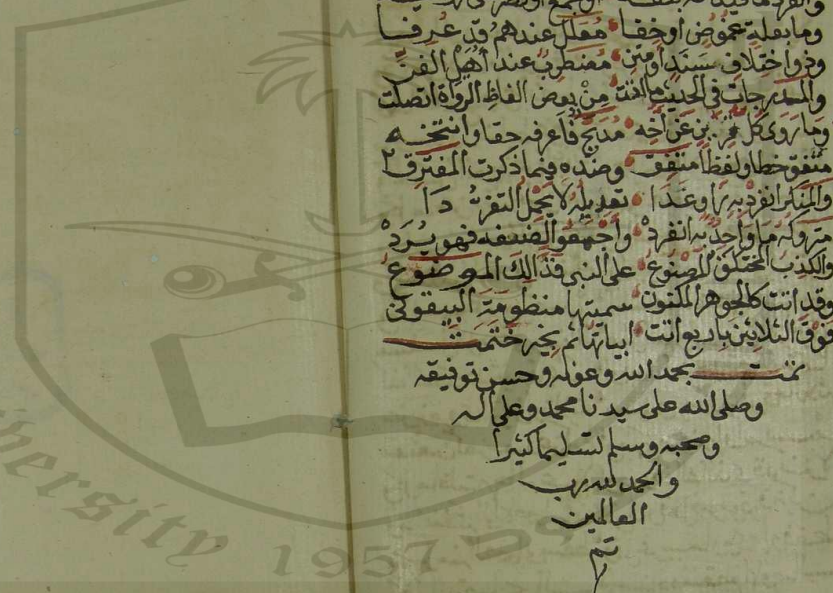 وما بعلة غموض أو خفا معلل عندهم قد عرفا
وذو اختلاف سند أو متن مضطرب عند أهيل الفن
والمدرجات في الحديث ما اتت من بعض الفاظ الرواة اتصلت
وما روى كل قرين عن أخه مدبج فاعرفه حقا وانتخه
متفق خطا ولفظا متفق وضده فيما ذكرت المفترق
والمنكر انفرد به راو غدا تعديله لا يحمل التفردا
متروكه ما واحد به انفرد وأجمعوا لضعفه فهو يرد
والكذب المختلق المصنوع على النبي فذالك الموضوع
وقد اتت كالجوهر المكنون سميتها منظومة البيقوني
فوق الثلاثين باربع اتت ابياتها ثم بخير ختمت
تمت بحمد الله وعونه وحسن توفيقه
وصلى الله على سيدنا محمد وعلى اله
وصحبه وسلم تسليما كثيرا
والحمد لله رب
العالمين
تم
versity 1957